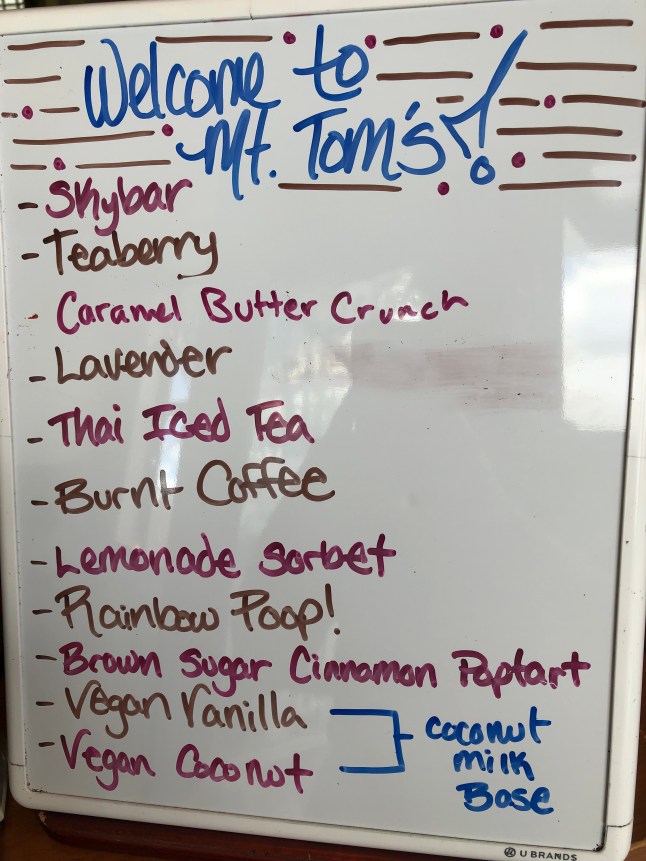 Welcome to
Mt. Tom's!
- Skybar
- Teaberry
- Caramel Butter Crunch
- Lavender
- Thai Iced Tea
- Burnt Coffee
- Lemonade Sorbet
- Rainbow Poop!
- Brown Sugar Cinnamon Poptart
- Vegan Vanilla
- Vegan Coconut
coconut
milk
Base
U BRANDS